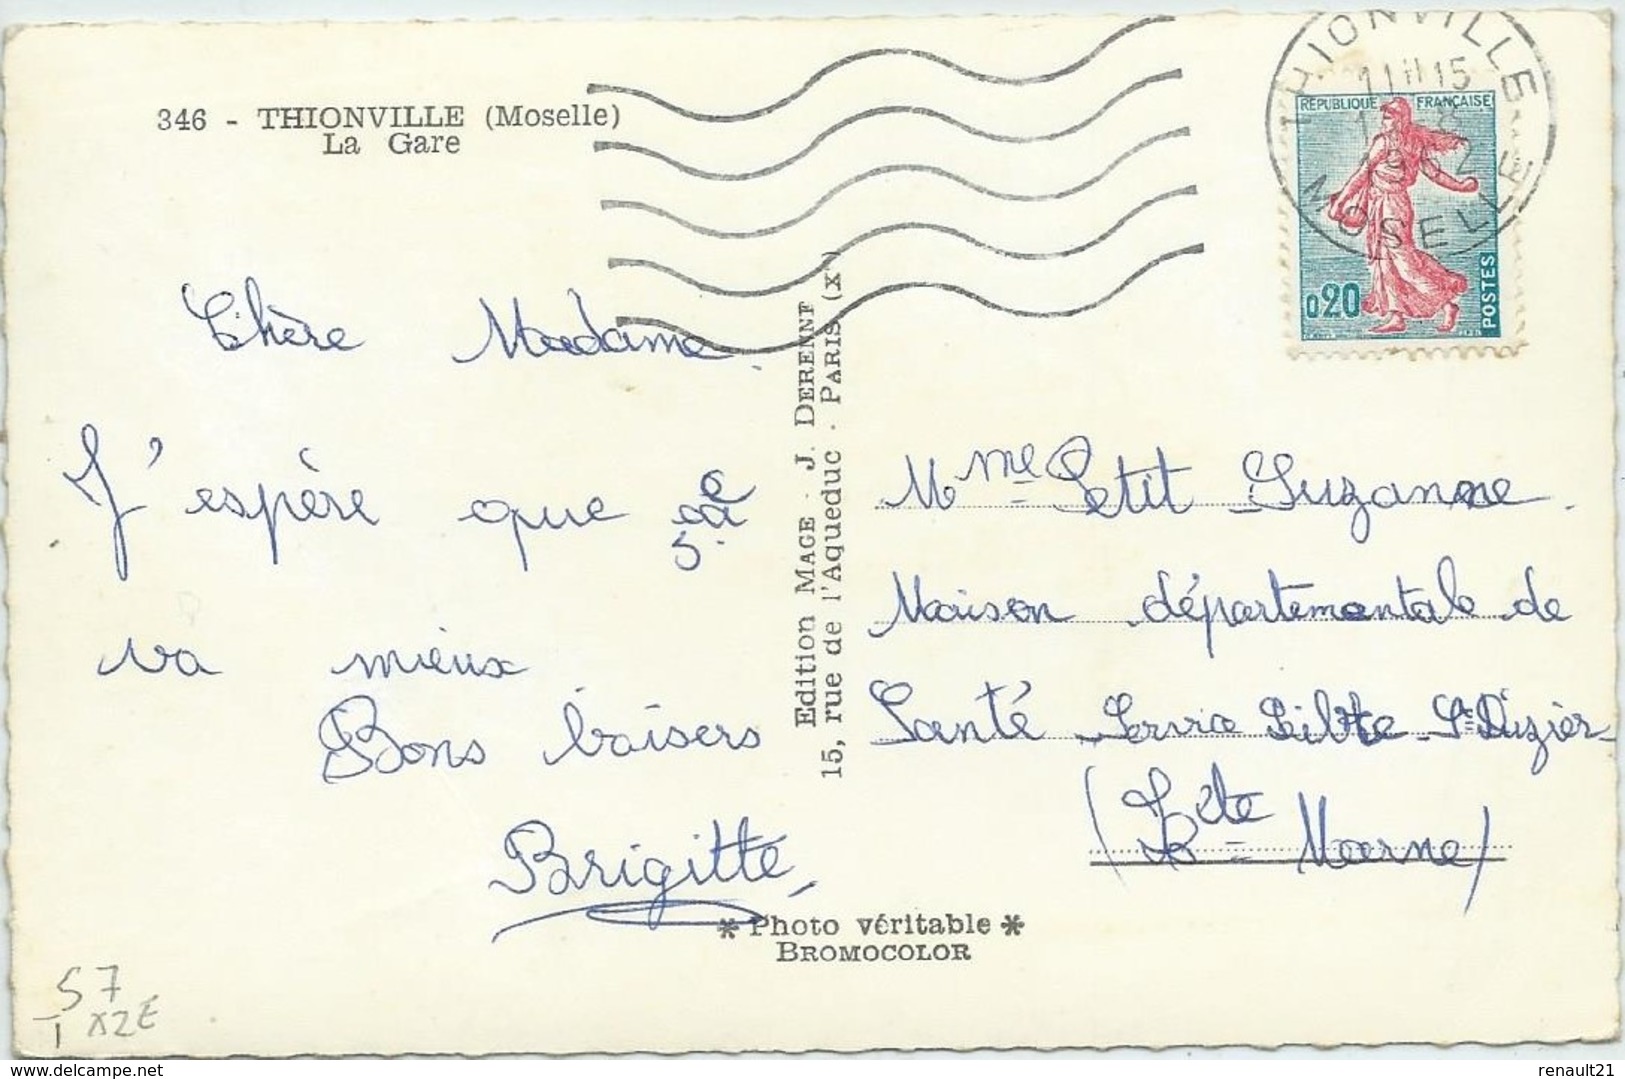 346 - THIONVILLE (Moselle)
La Gare
THIONVILLE
11H15
1962
MOSELLE
REPUBLIQUE FRANÇAISE
0,20
POSTES
Chère Madame
J'espère que ça
va mieux
Bons baisers
Brigitte
Edition MAGE - J. DERENNE
15, rue de l'Aqueduc - PARIS (Xe)
Mme Petit Suzanne
Maison départementale de
Santé Service St Dizier
(Hte Marne)
* Photo véritable *
BROMOCOLOR
57
X2E
delcampe.net
renault21